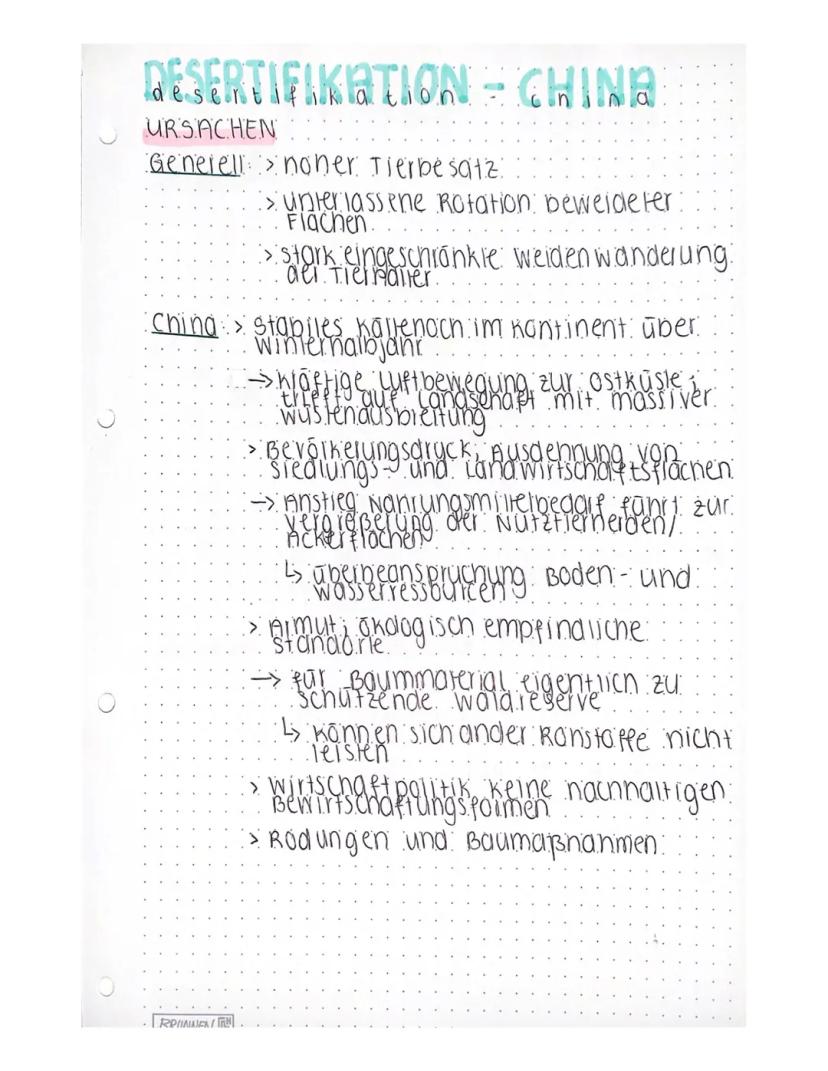 DESERTIFIKATION - CHINA
desertifikation - china
URSACHEN
Generell: > hoher Tierbesatz
> unterlassene Rotation beweideter
Flächen
> stark eingeschränkte Weidenwanderung
der Tierhalter
China: > stabiles Kältehoch im Kontinent über
Winterhalbjahr
→ kräftige Luftbewegung zur Ostküste;
trifft auf Landschaft mit massiver
Wüstenausbreitung
> Bevölkerungsdruck; Ausdehnung von
Siedlungs- und Landwirtschaftsflächen
→ Anstieg Nahrungsmittelbedarf führt zur
Vergrößerung der Nutztierherden/
Ackerflächen
↳ Überbeanspruchung Boden- und
Wasserressourcen
> Armut; ökologisch empfindliche
Standorte
→ für Baummaterial eigentlich zu
schützende Waldreserve
↳ können sich ander Rohstoffe nicht
leisten
> Wirtschaftpolitik keine nachhaltigen
Bewirtschaftungsformen
> Rodungen und Baumaßnahmen
BRUNNEN